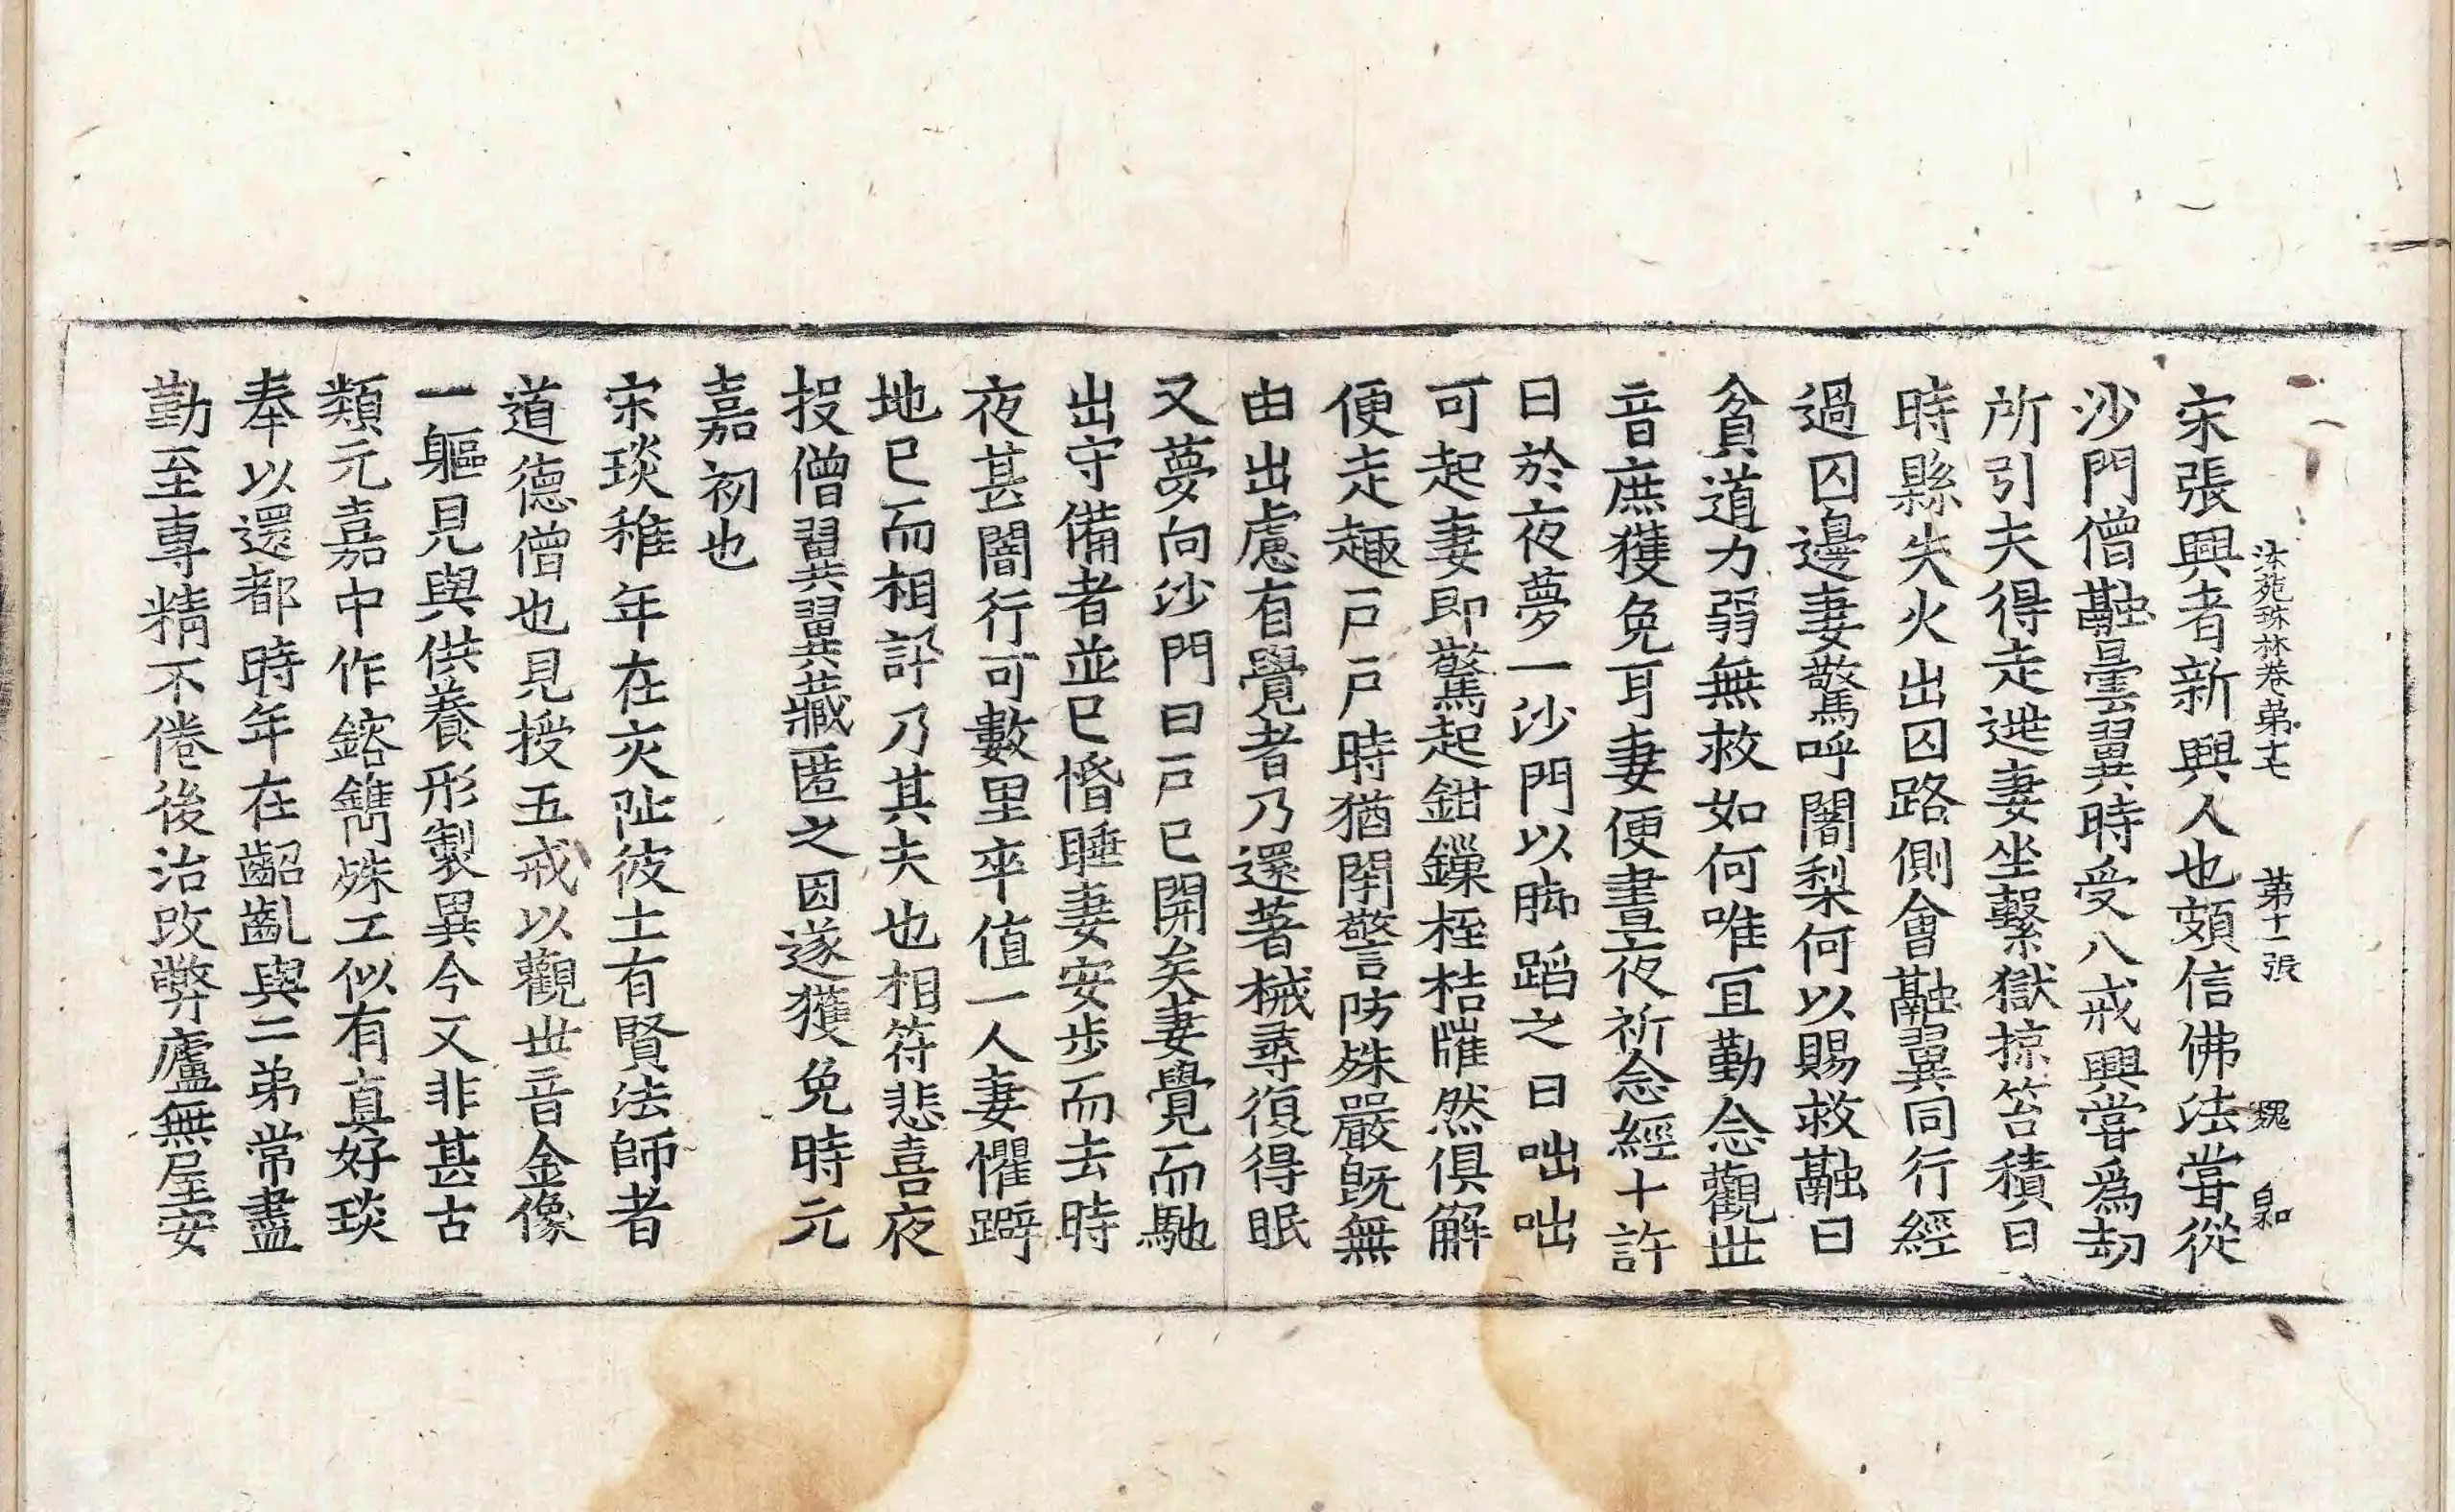 法苑珠林卷第十七 第十一張 魏
宋張興者新興人也頗信佛法甞從
沙門僧融曇翼時受八戒興甞爲劫
所引夫得走逃妻坐繫獄掠笞積日
時縣失火出囚路側會融翼同行經
過囚邊妻驚呼闍梨何以賜救融曰
貧道力弱無救如何唯宜勤念觀世
音庶獲免耳妻便晝夜祈念經十許
日於夜夢一沙門以脚蹈之曰咄咄
可起妻即驚起鉗鏁桎梏𠌯然俱解
便走趣戸戸時猶閉警防殊嚴旣無
由出慮有覺者乃還著械尋復得眠
又夢向沙門曰戸已開矣妻覺而馳
出守備者並已惛睡妻安步而去時
夜甚闇行可數里卒值一人妻懼躃
地已而相訊乃其夫也相符悲喜夜
投僧翼翼藏匿之因遂獲免時元
嘉初也
宋琰稚年在交阯彼土有賢法師者
道德僧也見授五戒以觀世音金像
一軀見與供養形製異今又非甚古
類元嘉中作鎔鐫殊工似有真好琰
奉以還都時年在齠齔與二弟常盡
勤至專精不倦後治改弊廬無屋安